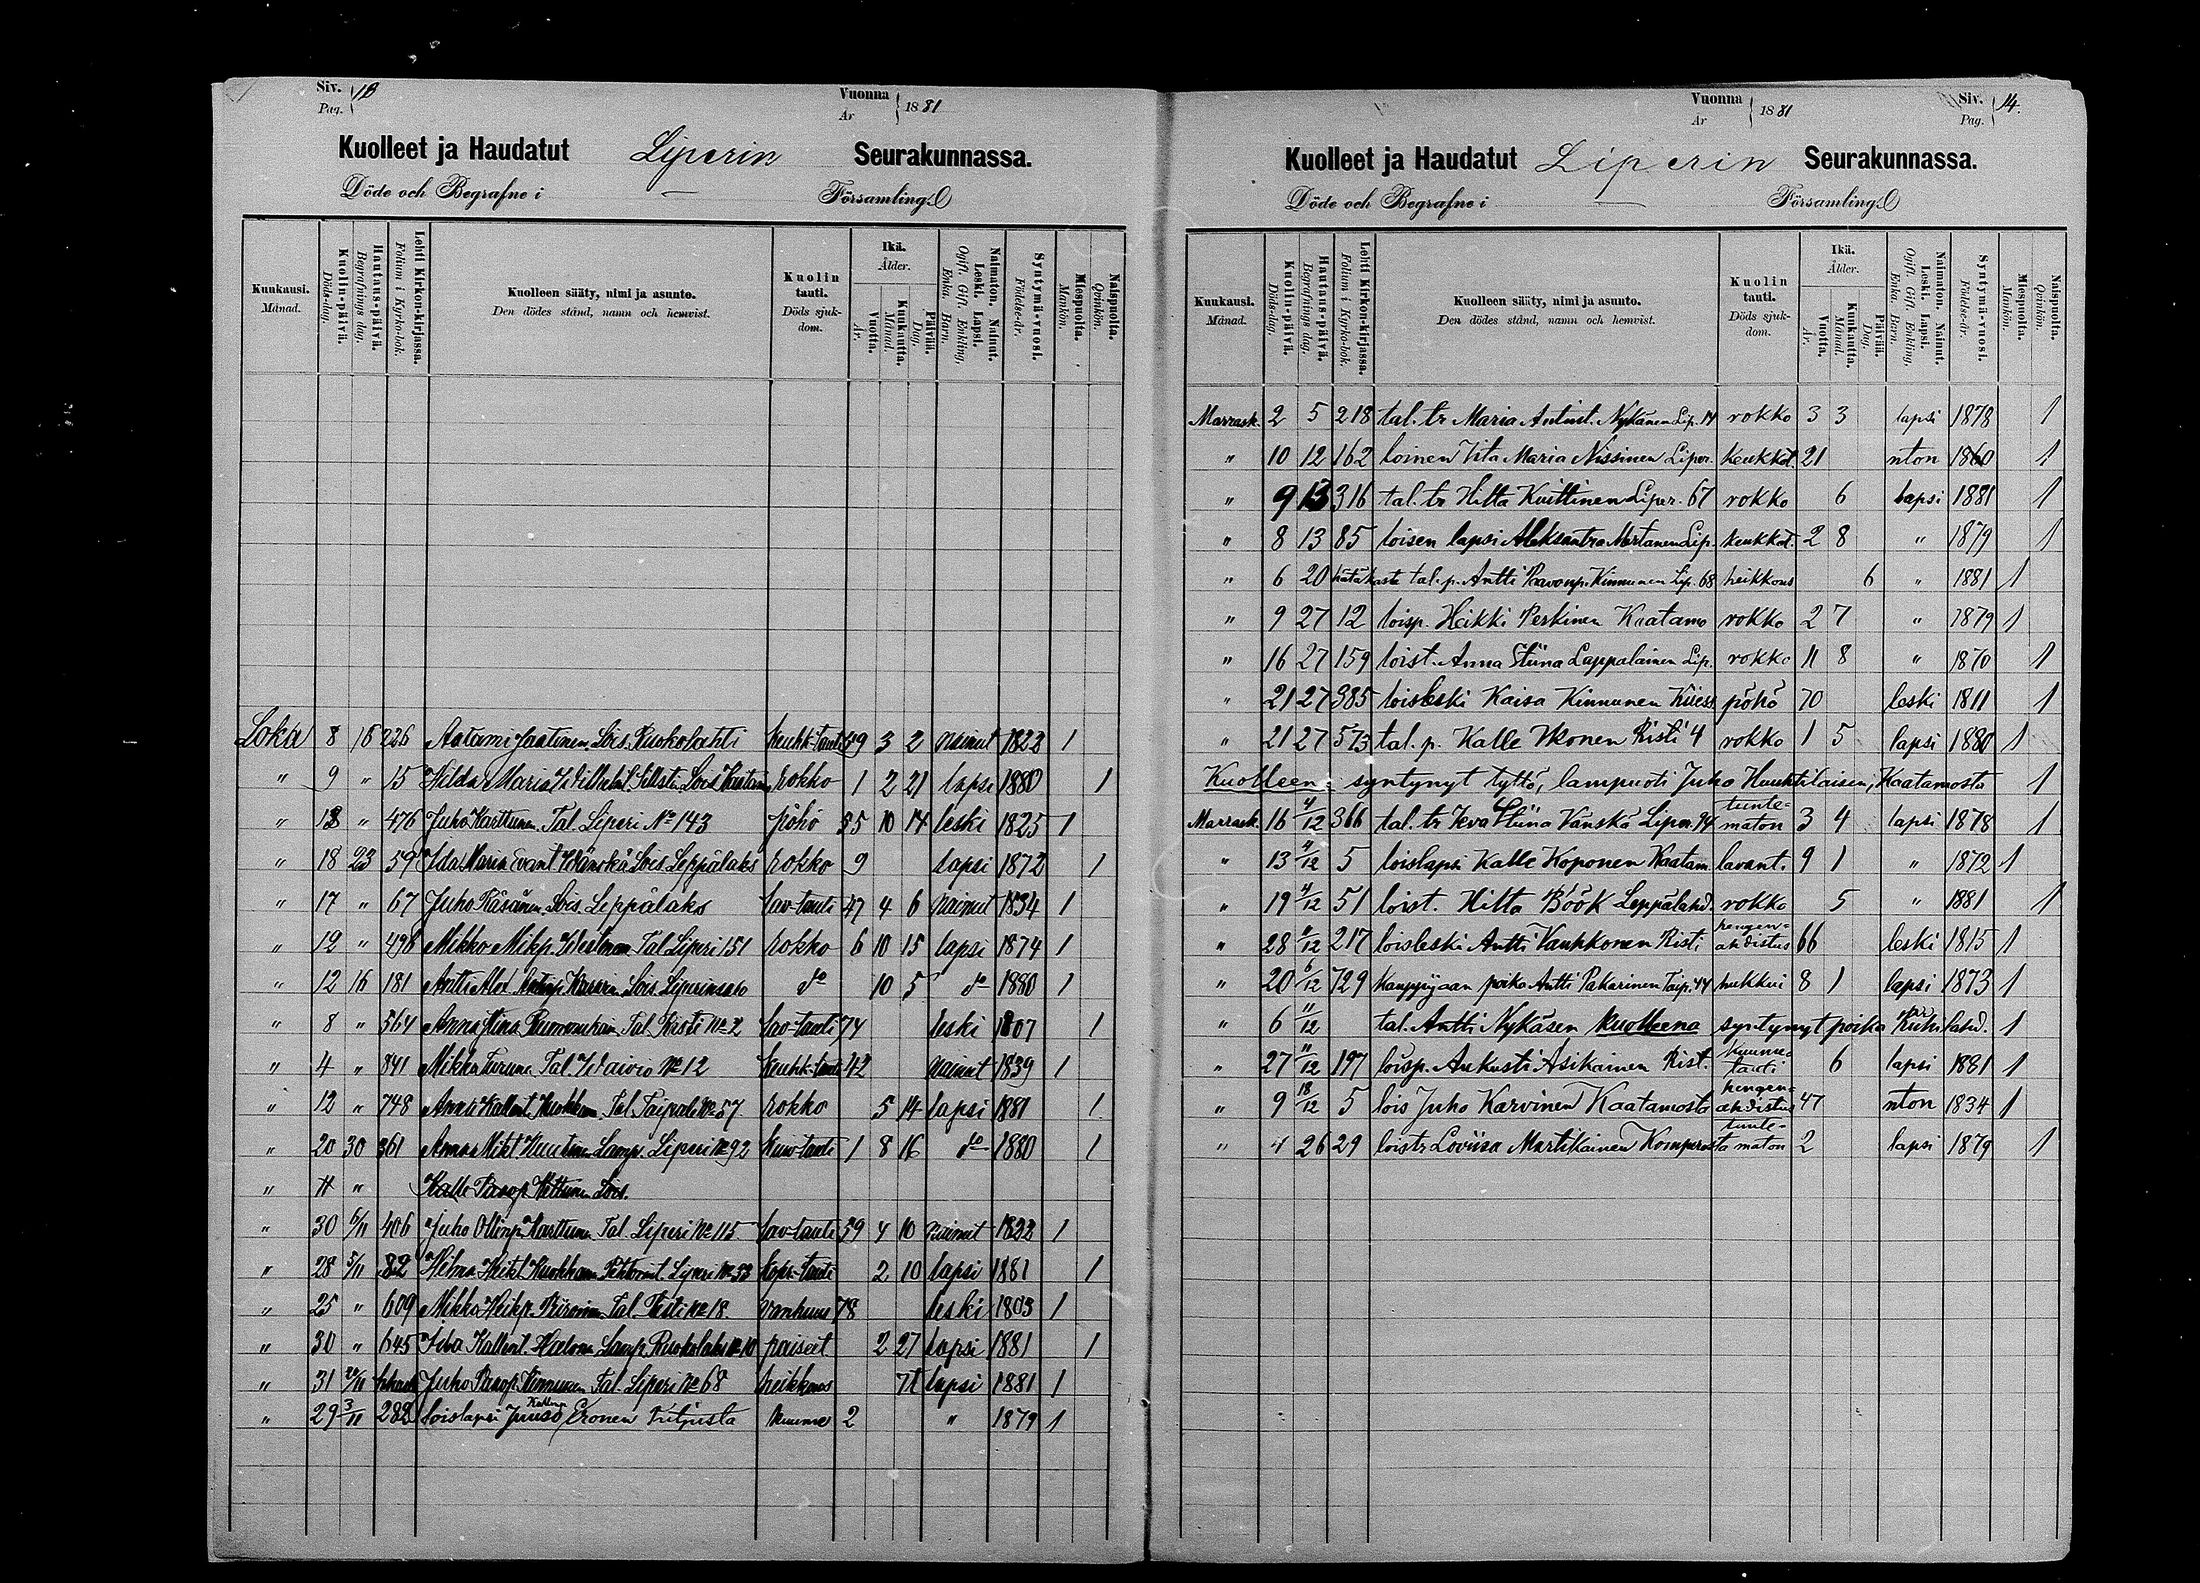 Siv. 13
Pag.
Vuonna 1881
År
Kuolleet ja Haudatut Liperin Seurakunnassa.
Döde och Begrafne i Församling.
Kuukausi. Månad.
Kuolin-päivä. Döds-dag.
Hautaus-päivä. Begrafnings dag.
Lehti Kirkon-kirjassa. Folium i Kyrko-bok.
Kuolleen sääty, nimi ja asunto.
Den dödes stånd, namn och hemvist.
Kuolin tauti. Döds sjukdom.
Ikä. Ålder.
Vuotta. År.
Kuukautta. Månad.
Päivää. Dag.
Naimaton. Nainut. Leski. Lapsi.
Ogift. Gift. Enkling. Enka. Barn.
Syntymä-vuosi. Födelse-år.
Miespuolta. Mankön.
Naispuolta. Qvinkön.
Loka 8 16 226 Aatami Jaatinen Lois. Ruokolahti keuhk-tauti 49 3 2 nainut 1822 1
" 9 " 15 Hilda Maria Lois rokko 1 2 21 lapsi 1880 1
" 13 " 476 Juho Karttunen Tal. Liperi No 143 pöhö 55 10 14 leski 1825 1
" 18 23 59 Ida Maria Lois. Leppälaks rokko 9 lapsi 1872 1
" 17 " 67 Juho Räsänen Lois. Leppälaks lav-tauti 47 4 6 nainut 1834 1
" 12 " 498 Mikko Mikp. Tal. Liperi 151 rokko 6 10 15 lapsi 1874 1
" 12 16 181 Antti Lois. Liperinsalo do 10 5 do 1880 1
" 8 " 564 Anna Tal. Risti No 2 lav-tauti 74 leski 1807 1
" 4 " 841 Mikko Turunen Tal. No 12 keuhk-tauti 42 nainut 1839 1
" 12 " 748 Tal. Taipale No 57 rokko 5 14 lapsi 1881 1
" 20 30 361 Anna Mikt. Lamp. Liperi No 92 1 8 16 do 1880 1
" " Kalle Paavop. Kettunen Lois.
" 30 6/11 406 Juho Ollinp. Karttunen Tal. Liperi No 115 lav-tauti 59 4 10 nainut 1822 1
" 28 5/11 82 Hilma Heikt. Liperi No 33 2 10 lapsi 1881 1
" 25 " 609 Mikko Heikp. Tal. Risti No 18. vanhuus 78 leski 1803 1
" 30 " 645 Lamp. Ruokolaks No 10 paiseet 2 27 lapsi 1881 1
" 31 20/11 Juho Paavop. Kinnunen Tal. Liperi No 68 heikkous lapsi 1881 1
" 29 3/11 282 loislapsi Juuso Eronen kuume 2 " 1879 1
Vuonna 1881
År
Siv. 14.
Pag.
Kuolleet ja Haudatut Liperin Seurakunnassa.
Döde och Begrafne i Församling.
Kuukausi. Månad.
Kuolin-päivä. Döds-dag.
Hautaus-päivä. Begrafnings dag.
Lehti Kirkon-kirjassa. Folium i Kyrko-bok.
Kuolleen sääty, nimi ja asunto.
Den dödes stånd, namn och hemvist.
Kuolin tauti. Döds sjukdom.
Ikä. Ålder.
Vuotta. År.
Kuukautta. Månad.
Päivää. Dag.
Naimaton. Nainut. Leski. Lapsi.
Ogift. Gift. Enkling. Enka. Barn.
Syntymä-vuosi. Födelse-år.
Miespuolta. Mankön.
Naispuolta. Qvinkön.
Marrask. 2 5 218 tal. tr Maria Nykänen Lip. 14 rokko 3 3 lapsi 1878 1
" 10 12 162 loinen Maria Nissinen Liper. keukkot. 21 nton 1860 1
" 9 13 316 tal. tr Hilta Kuittinen Liper. 67 rokko 6 lapsi 1881 1
" 8 13 85 loisen lapsi Aleksantra Mertanen Lip. keukkot. 2 8 " 1879 1
" 6 20 hätäkaste tal. p. Antti Paavonp. Kinnunen Lip. 68 heikkous 6 " 1881 1
" 9 27 12 loisp. Heikki Reskinen Kaatamo rokko 2 7 " 1879 1
" 16 27 159 loist. Anna Stiina Lappalainen Lip. rokko 11 8 " 1870 1
" 21 27 385 loisleski Kaisa Kinnunen pöhö 70 leski 1811 1
" 21 27 573 tal. p. Kalle Ikonen Risti 4 rokko 1 5 lapsi 1880 1
Kuolleena syntynyt tyttö, lampuoti Juho Huuktilaisen, Kaatamosta 1
Marrask. 16 4/12 366 tal. tr Eva Stiina Vänskä Liper. 74 tuntematon 3 4 lapsi 1878 1
" 13 4/12 5 loislapsi Kalle Koponen Kaatam. lavant. 9 1 " 1872 1
" 19 4/12 51 loist. Hilta Böök Leppälahd. rokko 5 " 1881 1
" 28 4/12 217 loisleski Antti Vauhkonen Risti hengenahdistus 66 leski 1815 1
" 20 6/12 729 kauppijaan poika Antti Pakarinen Taip. 44 hukkui 8 1 lapsi 1873 1
" 6 11/12 tal. Antti Nykäsen kuolleena syntynyt poika 1
" 27 11/12 197 loisp. Aukusti Asikainen Rist. kuumetauti 6 lapsi 1881 1
" 9 18/12 5 lois Juho Karvinen Kaatamosta hengenahdistus 47 nton 1834 1
" 4 26 29 loistr Loviisa Martikainen Komperosta tuntematon 2 lapsi 1879 1